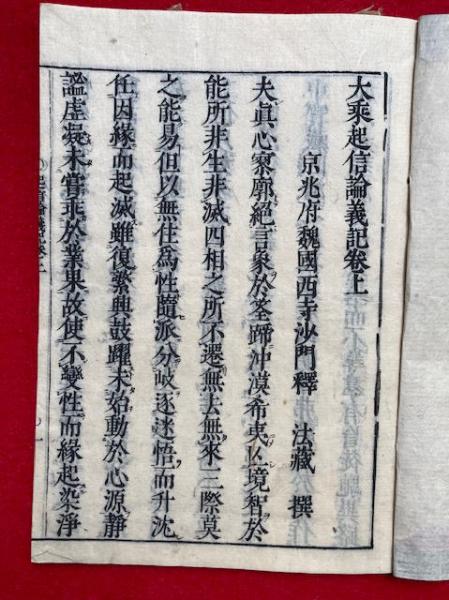 大乘起信論義記卷上
京兆府魏國西寺沙門釋 法藏 撰
夫眞心寥廓絕言象於筌蹄冲漠希夷亾境智於
能所非生非滅四相之所不遷無去無來三際莫
之能易但以無住爲性隨派分岐逐迷悟而升沈
任因緣而起滅雖復繁興鼓躍未始動於心源靜
謐虛凝未嘗乖於業果故使不變性而緣起染淨
起信論義記卷上